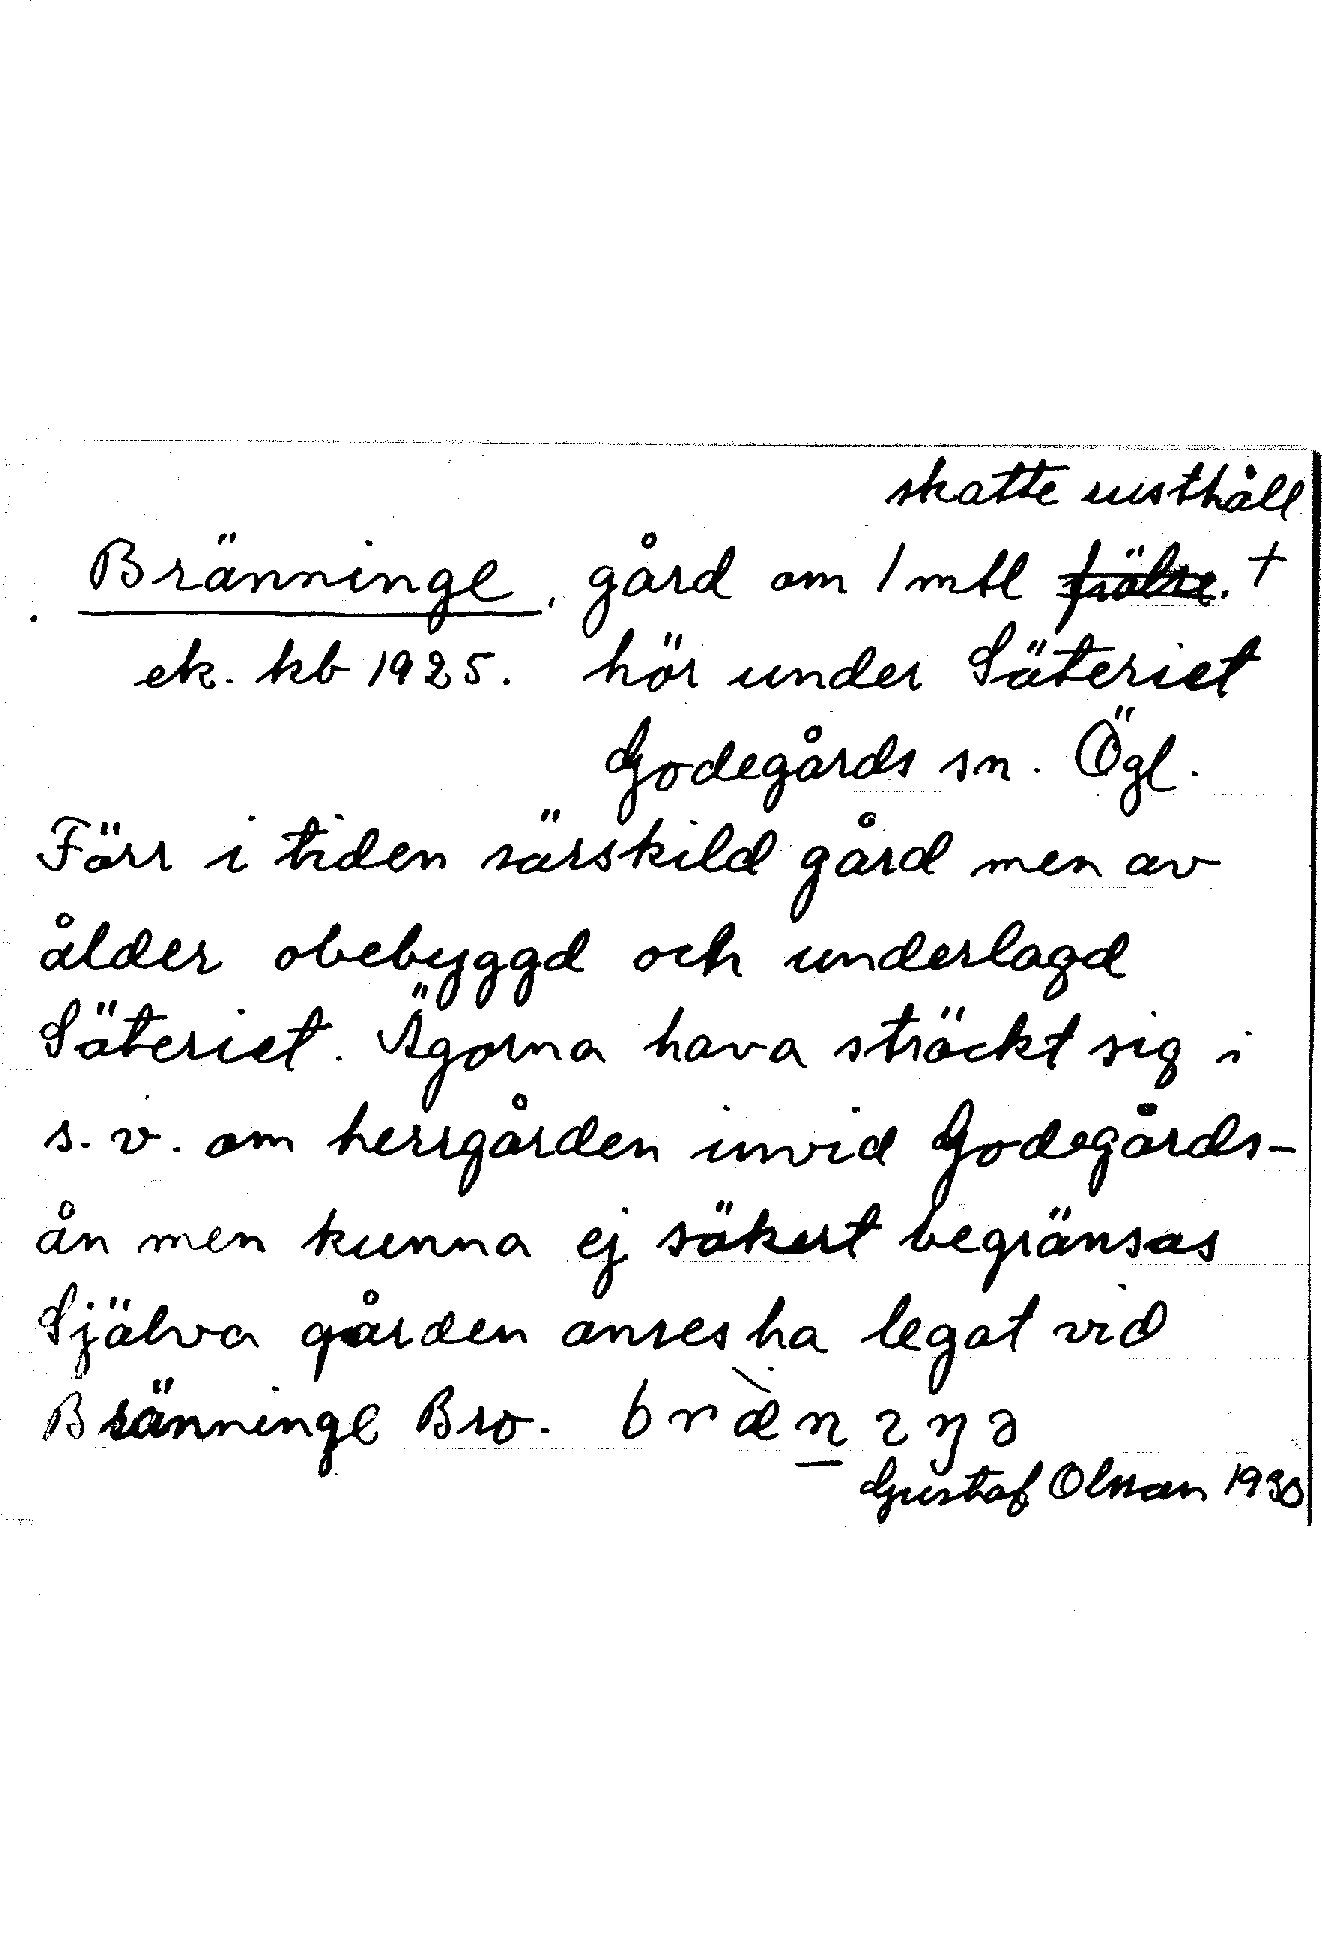 skatte rusthåll
Bränninge, gård om 1 mtl frälse. +
ek. kb 1925. hör under Säteriet
Godegårds sn. Ögl.
Förr i tiden särskild gård men av
ålder obebyggd och underlagd
Säteriet. Ägorna hava sträckt sig i
s. v. om herrgården invid Godegårds-
ån men kunna ej säkert begränsas
Själva gården anses ha legat vid
Bränninge Bro. bræ̀n̲ɪŋə
Gustaf Olsson 1930